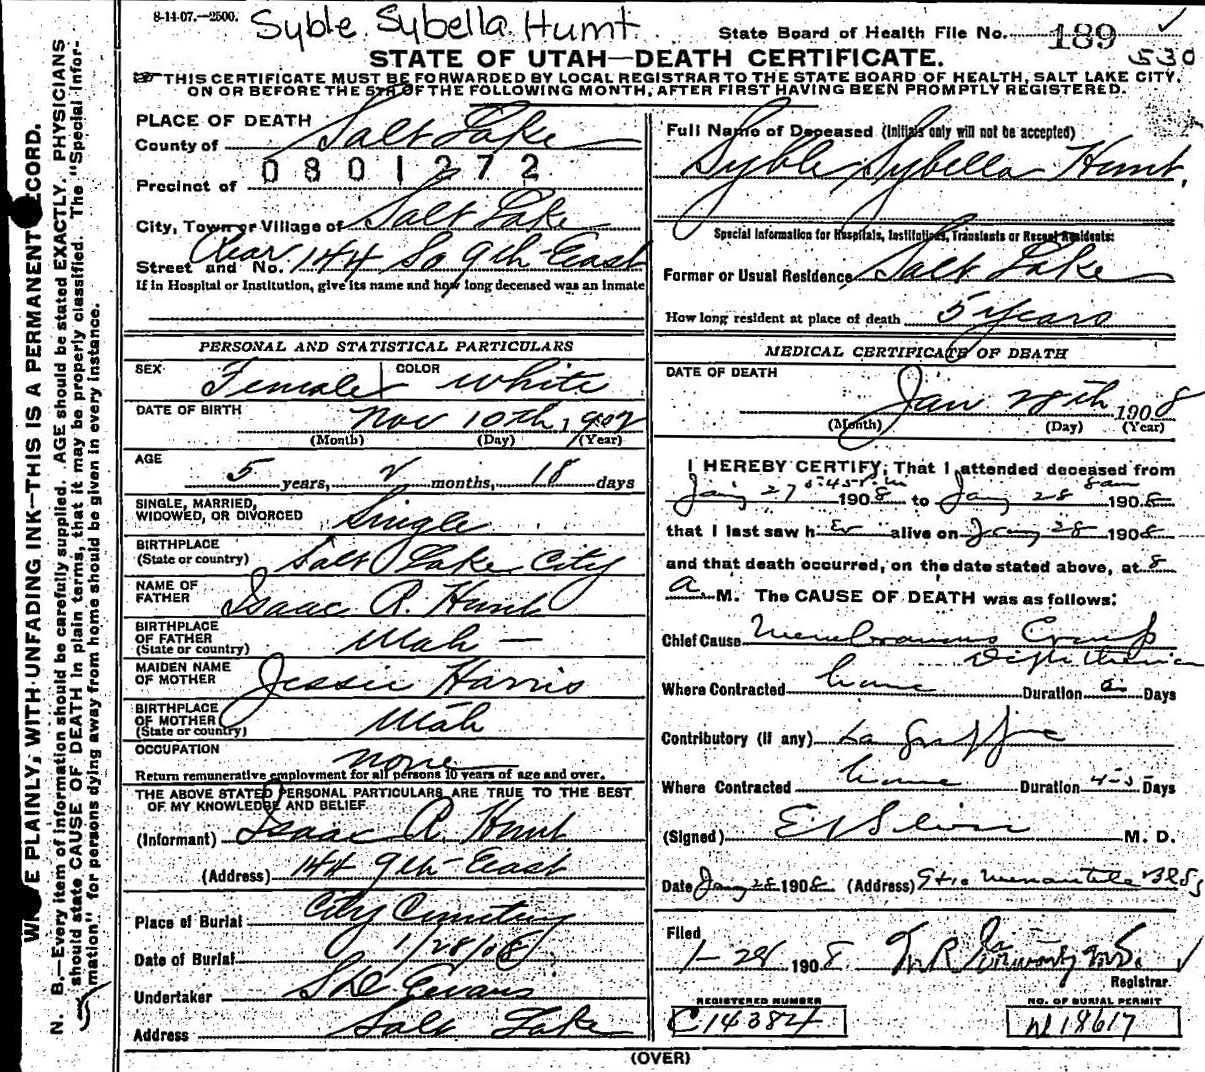 8-14-07.—2500.
Syble Sybella Hunt
State Board of Health File No. 189
530
STATE OF UTAH—DEATH CERTIFICATE.
THIS CERTIFICATE MUST BE FORWARDED BY LOCAL REGISTRAR TO THE STATE BOARD OF HEALTH, SALT LAKE CITY,
ON OR BEFORE THE 5TH OF THE FOLLOWING MONTH, AFTER FIRST HAVING BEEN PROMPTLY REGISTERED.
PLACE OF DEATH
County of Salt Lake
0801272
Precinct of
City, Town or Village of Salt Lake
Street and No. Rear 144 So 9th East
If in Hospital or Institution, give its name and how long deceased was an inmate
PERSONAL AND STATISTICAL PARTICULARS
SEX Female COLOR White
DATE OF BIRTH Nov 10th, 1902
(Month) (Day) (Year)
AGE
5 years, 2 months, 18 days
SINGLE, MARRIED,
WIDOWED, OR DIVORCED Single
BIRTHPLACE
(State or country) Salt Lake City
NAME OF
FATHER Isaac R. Hunt
BIRTHPLACE
OF FATHER
(State or country) Utah —
MAIDEN NAME
OF MOTHER Jessie Harris
BIRTHPLACE
OF MOTHER
(State or country) Utah
OCCUPATION none
Return remunerative employment for all persons 10 years of age and over.
THE ABOVE STATED PERSONAL PARTICULARS ARE TRUE TO THE BEST
OF MY KNOWLEDGE AND BELIEF
(Informant) Isaac R. Hunt
(Address) 144 9th East
Place of Burial City Cemetery
Date of Burial 1/28/08
Undertaker S D Evans
Address Salt Lake
Full Name of Deceased (Initials only will not be accepted)
Syble Sybella Hunt,
Special Information for Hospitals, Institutions, Transients or Recent Residents:
Former or Usual Residence Salt Lake
How long resident at place of death 5 years
MEDICAL CERTIFICATE OF DEATH
DATE OF DEATH
Jan 28th 1908
(Month) (Day) (Year)
I HEREBY CERTIFY, That I attended deceased from
Jany 27 5:45 P.M 1908 to Jany 28 8am 1908
that I last saw her alive on Jany 28 1908
and that death occurred, on the date stated above, at 8
a. M. The CAUSE OF DEATH was as follows:
Chief Cause Membranous Croup
Diphtheria
Where Contracted home Duration Days
Contributory (if any) La Grippe
Where Contracted home Duration 4-5 Days
(Signed) M. D.
Date Jany 28 1908 (Address) Mercantile Bldg
Filed
1-29 1908.
Registrar
REGISTERED NUMBER
C14384
NO. OF BURIAL PERMIT
18617
(OVER)
WRITE PLAINLY, WITH UNFADING INK—THIS IS A PERMANENT RECORD.
N. B.—Every item of information should be carefully supplied. AGE should be stated EXACTLY. PHYSICIANS
should state CAUSE OF DEATH in plain terms, that it may be properly classified. The "Special Infor-
mation" for persons dying away from home should be given in every instance.